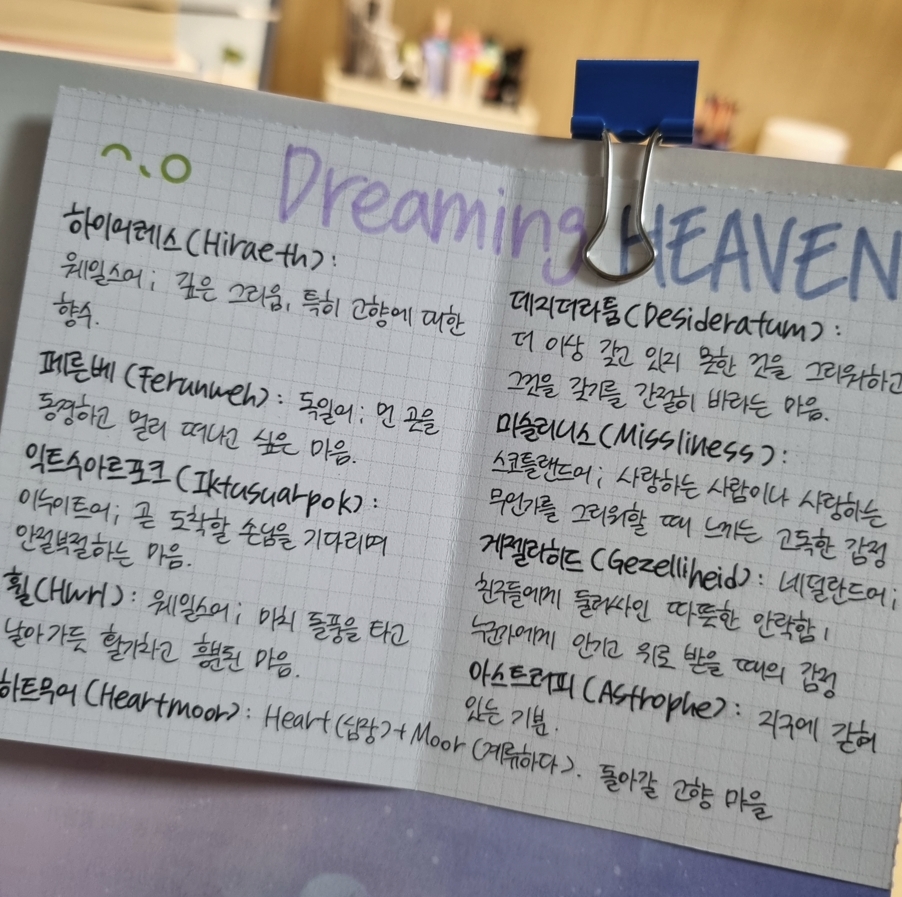 Dreaming HEAVEN
하이어레스(Hiraeth):
웨일스어; 깊은 그리움, 특히 고향에 대한
향수.
페른베(Ferunweh): 독일어; 먼 곳을
동경하고 멀리 떠나고 싶은 마음.
익트수아르포크(Iktusuarpok):
이누이트어; 곧 도착할 손님을 기다리며
안절부절하는 마음.
휠(Hwrl): 웨일스어; 마치 돌풍을 타고
날아가듯 활기차고 흥분된 마음.
하트무어(Heartmoor): Heart(심장)+Moor(계류하다). 돌아갈 고향 마을
데지더라툼(Desideratum):
더 이상 갖고 있지 못한 것을 그리워하고
그것을 갖기를 간절히 바라는 마음.
미슬리니스(Missliness):
스코틀랜드어; 사랑하는 사람이나 사랑하는
무언가를 그리워할 때 느끼는 고독한 감정
게젤라하드(Gezelliheid): 네덜란드어;
친구들에게 둘러싸인 따뜻한 안락함,
누군가에게 안기고 위로 받을 때의 감정
아스트러피(Astrophe): 지구에 갇혀
있는 기분.